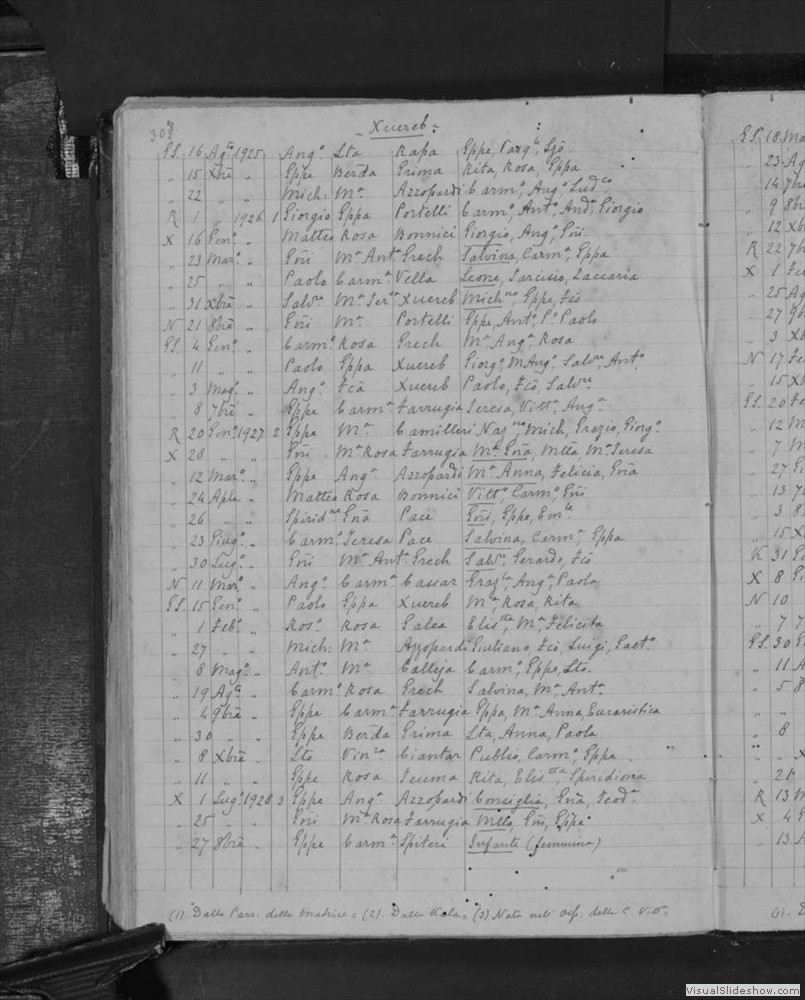 308
Xuereb
G.S. 16 Agto 1925 Ango Lta Rapa Gppe, Carmo
" 15 Xbre " Gppe Berda Grima Rita, Rosa, Gppa
" 22 " " Mich: Ma Azzopardi Carmo, Ango, Ludco
R 1 " 1926 1 Giorgio Gppa Portelli Carmo, Anto, Anda, Giorgio
X 16 Geno " Matteo Rosa Bonnici Giorgio, Ango, Gñi
" 23 Maro " Gñi Ma Anta Grech Salvina, Carma, Gppa
" 25 " " Paolo Carma Vella Leone, Zaccaria
" 31 Xbre " Salvre Ma Xuereb Gppe, Fco
N 21 8bre " Gñi Ma Portelli Gppe, Anto, Po Paolo
G.S. 4 Geno " Carmo Rosa Grech Ma Anga Rosa
" 11 " " Paolo Gppa Xuereb Giorgo, M Anga, Salvre, Anto
" 3 Mago " Ango Fca Xuereb Paolo, Fco, Salvre
" 8 7bre " Gppe Carma Farrugia Teresa, Vitta, Anga
R 20 Geno 1927 2 Gppe Ma Camilleri Mich, Grazio, Giorgo
X 28 " " Gñi Ma Rosa Farrugia Ma Gña, Ma Teresa
" 12 Maro " Gppe Anga Azzopardi Ma Anna, Felicia, Gña
" 24 Aple " Matteo Rosa Bonnici Vitto, Carmo, Gñi
" 26 " " Spiridne Gña Pace Gñi, Gppe, Emle
" 23 Giugo " Carmo Teresa Pace Salvina, Carma, Gppa
" 30 Lugo " Gñi Ma Anta Grech Salvre, Gerardo, Fco
N 11 Maro " Ango Carma Cassar Anga, Paola
G.S. 15 Geno " Paolo Gppa Xuereb Ma, Rosa, Rita
" 1 Febo " Roso Rosa Galea Elistta, Ma, Felicita
" 27 " " Mich: Ma Azzopardi Giuliano, Fco, Luigi, Gaeto
" 8 Mago " Anto Ma Calleja Carmo, Gppe, Lto
" 19 Agto " Carmo Rosa Grech Salvina, Ma, Anta
" 4 9bre " Gppe Carma Farrugia Gppa, Ma Anna, Eucaristica
" 30 " " Gppe Berda Grima Lta, Anna, Paola
" 8 Xbre " Lto Vinza Ciantar Publio, Carmo, Gppe
" 11 " " Gppe Rosa Teuma Rita, Elistta, Spiridiona
X 1 Lugo 1928 3 Gppe Anga Azzopardi Consiglia, Gña, Teoda
" 25 " " Gñi Ma Rosa Farrugia Mtto, Gñi, Gppe
" 27 8bre " Gppe Carma Spiteri Infante (femmina)
(1). Dalla Parr. della Matrice = (2). Dalla Kala = (3) Nato nell' Osp. della C. Vitt.=
G.S. 18
" 23
" 14
" 9
" 12
R 22
X 1
" 25
" 27
" 3
N 17
" 15
G.S. 20
" 12
" 7
" 27
" 13
" 3
" 15
K 31
X 8
N 10
" 7
G.S. 30
" 11
" 5
" 8
" 21
R 13
X 4
" 13
VisualSlideshow.com